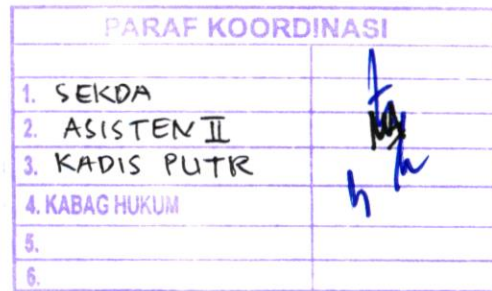 PARAF KOORDINASI
1. SEKDA
2. ASISTEN II
3. KADIS PUTR
4. KABAG HUKUM
5.
6.